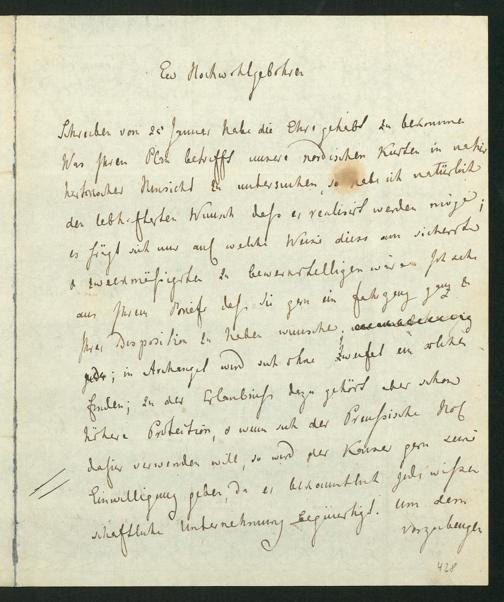 Ew Hochwohlgebohren
Schreiben von 25 Januar habe die Ehre gehabt zu bekommen
Was Ihren Plan betrifft unsere nordischen Küsten in natur
historischer Hinsicht zu untersuchen, so habe ich natürlich
den lebhaftesten Wunsch dass es realisirt werden möge;
es frägt sich nur auf welche Weise dieses am sichersten
& zweckmässigsten zu bewerkstelligen wäre. Ich sehe
aus Ihrem Briefe dass Sie gern ein fahrzeug ganz zu
Ihrer Disposition zu haben wünschen,
in Archangel wird sich ohne Zweifel ein solches
finden; zu der Erlaubniss dazu gehört aber schon
höhere Protection, & wenn sich der Preussische Hof
dafür verwenden will, so wird der Kaiser gern seine
Einwilligung geben, da er bekanntlich jede wissen
schaftliche Unternehmung begünstigt. Um dem
vorzubeugen
428